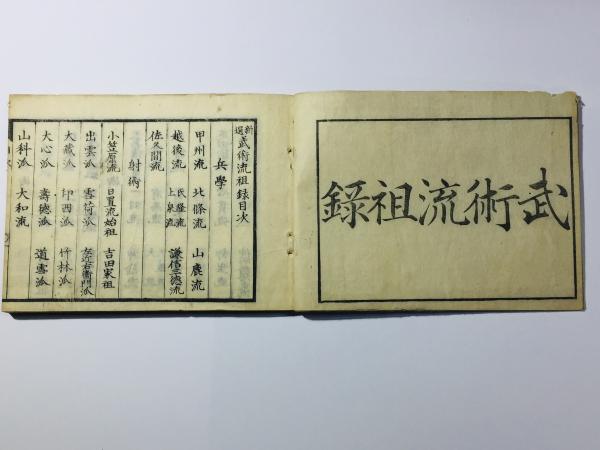 武術流祖録
新選武術流祖録目次
兵學
甲州流 北條流 山鹿流
越後流 氏隆流 上泉流 謙信三徳流
佐久間流
射術
小笠原流 日置流始祖 吉田家祖
出雲派 雪荷派 左近右衛門派
大藏派 印西派 竹林派
大心派 壽德派 道雪派
山科派 大和流